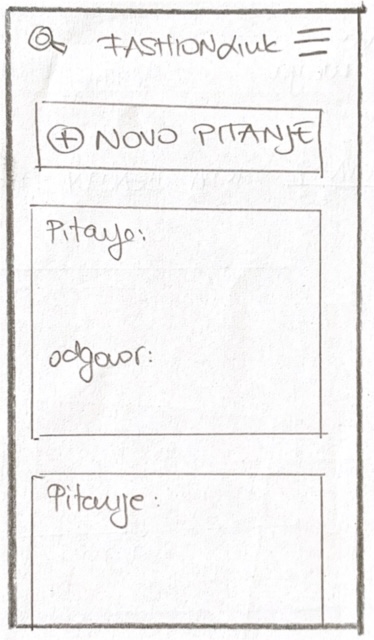 FASHIONdiuk
NOVO PITANJE
Pitanje:
odgovor:
Pitanje: